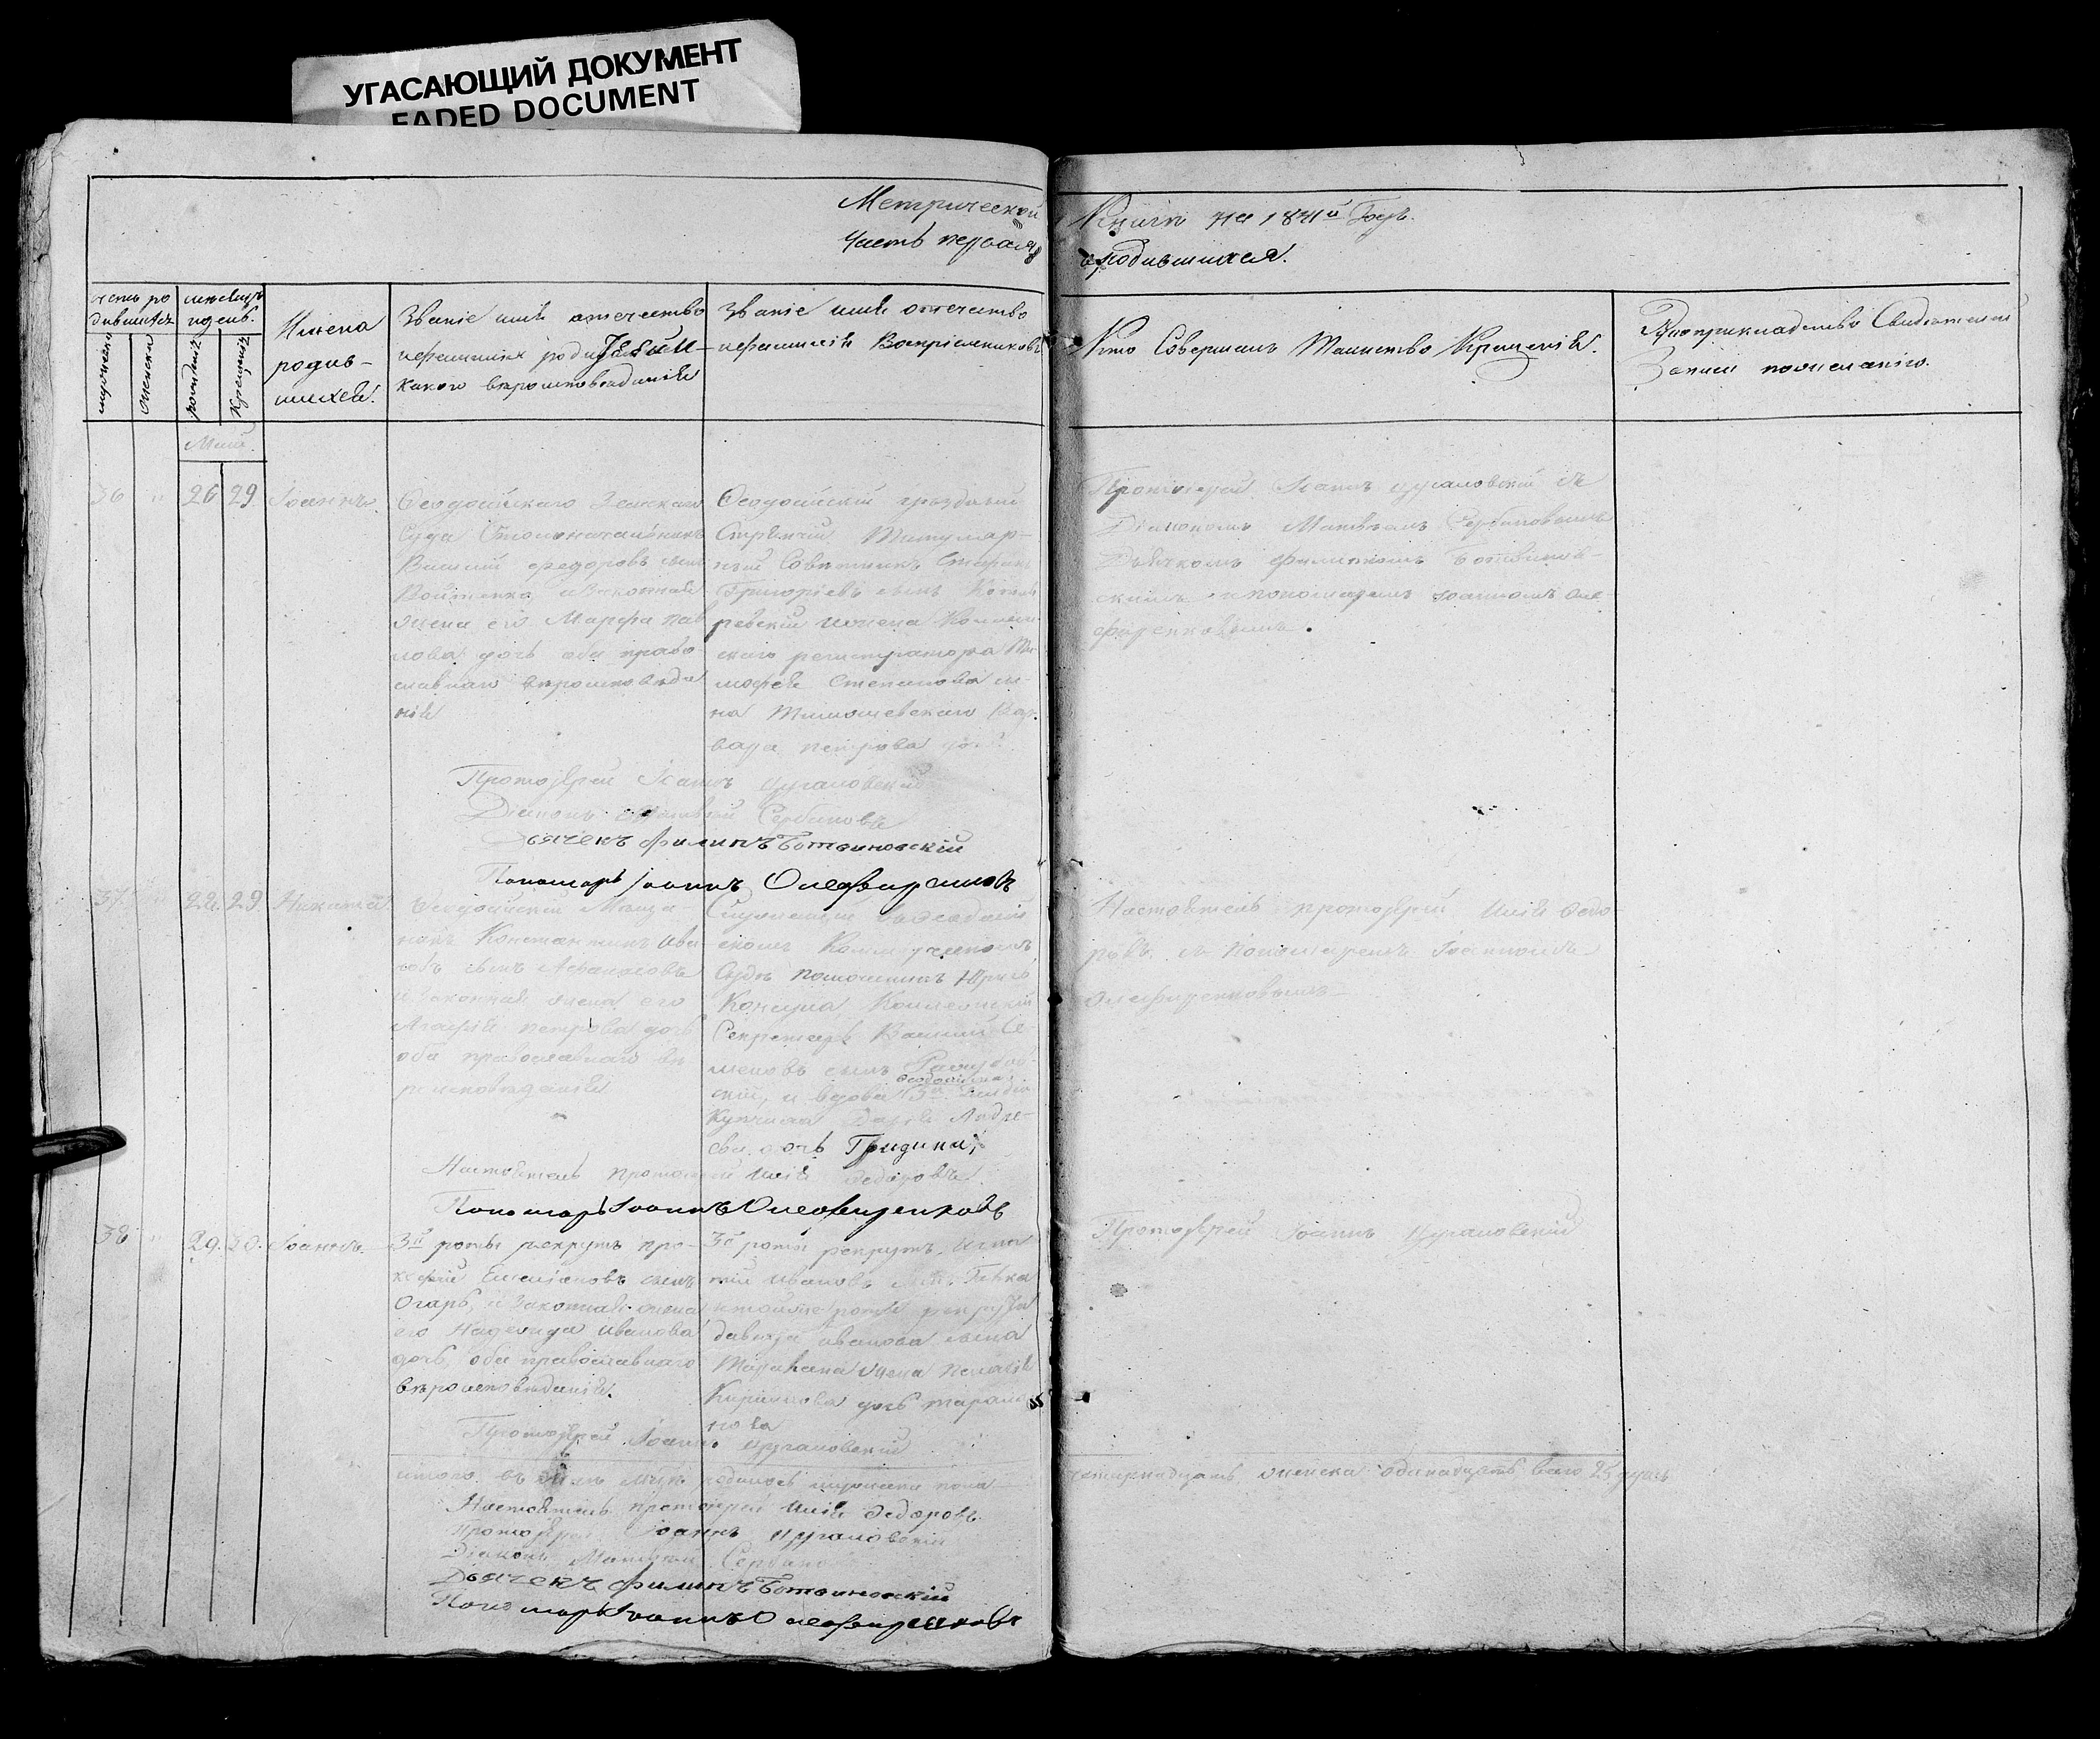 УГАСАЮЩИЙ ДОКУМЕНТ
FADED DOCUMENT
Метрической
Часть первая
Книги на 1841й Годъ.
ородившихся.
мужеска
женска
мѣсяцъ
рожденія
крещенія
Имена
родив-
шихся.
Званіе имя отечество
ифамилія родителей
какого вѣроисповѣданія
Званіе имя отечество
ифамилія Воспріемниковъ
Кто Совершалъ Таинство Крещенія.
Рукоприкладство Свидетелей
Записи пожеланію.
Маій
36 " 26 29 Іоаннъ.
Ѳеодосійскаго Земскаго
Суда Столоначальникъ
Василій Федоровъ сынъ
Войтенко изаконная
жена его Марфа Пав
лова дочь оба право-
славнаго вѣроисповѣда
нія
Ѳеодосійскій
Стряпчій Титуляр-
ный Совѣтникъ
Григоріевъ сынъ
ижена Коллеж
скаго регистратора Ти
мофея Степанова сы-
на Тимошевскаго Вар-
вара петрова дочь.
Протоіерей Іоаннъ Цугаловскій съ
Діакономъ Матвѣемъ Сербиновымъ
Дьячкомъ Филипомъ Ботвинов-
скимъ ипономаремъ Іоанномъ Оле
фиренковымъ.
Протоіерей Іоаннъ Цугаловскій
Діаконъ Матвей Сербиновъ
Дьячекъ Филипъ Ботвиновскій
Пономарь Іоаннъ Олефиренковъ
37 28 29
Ѳеодосійскій Меща-
нинъ Константинъ Ива-
новъ сынъ
и Законная жена его
Агафія петрова дочь
оба православнаго вѣ
роисповѣданія
Служащій вѣеодосій
скомъ Коммерческомъ
Судѣ помощникъ Юрис
Консула Коллежскій
Секретарь Василій Се
меновъ сынъ
скій, и вдова 3й Гильдіи
ѳеодосійская
Купчиха Дарья Андре-
ева дочь Гридина;
Настоятель протоіерей Илія Ѳедо-
ровъ съ Пономаремъ Іоанномъ
Олефиренковымъ
Настоятель протоіерей Илія Ѳедоровъ.
Пономарь Іоаннъ Олефиренковъ
38 " 29. 30. Іоаннъ.
3й роты рекрутъ про-
кофій Емельяновъ сынъ
Огарь, и Законная жена
его Надежда Иванова
дочь, оба православнаго
вѣроисповѣданія.
3й роты рекрутъ Игна
тій Ивановъ сынъ
итойже роты рекрута
давида иванова сына
Таракана жена Пелагія
Кирилова дочь тарака
нова
Протоіерей Іоаннъ Цугаловскій
Протоіерей Іоаннъ Цугаловскій
итого въ маѣ мцѣ родилось мужеска пола
четырнадцать, женска одинадцать всего 25 душъ
Настоятель протоіерей Илія Ѳедоровъ.
Протоіерей Іоаннъ Цугаловскій
Діаконъ Матвей Сербиновъ
Дьячекъ Филипъ Ботвиновскій
Пономарь Іоаннъ Олефиренковъ